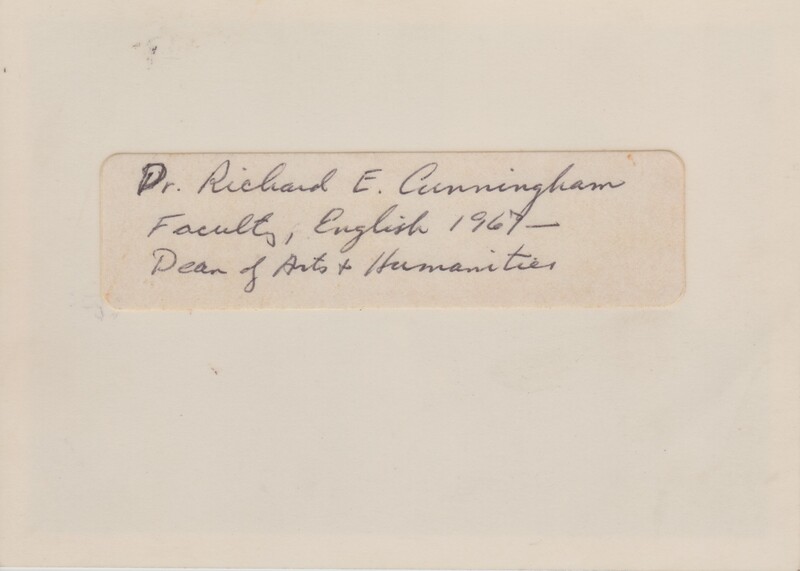 Dr. Richard E. Cunningham
Faculty, English 1967—
Dean of Arts + Humanities